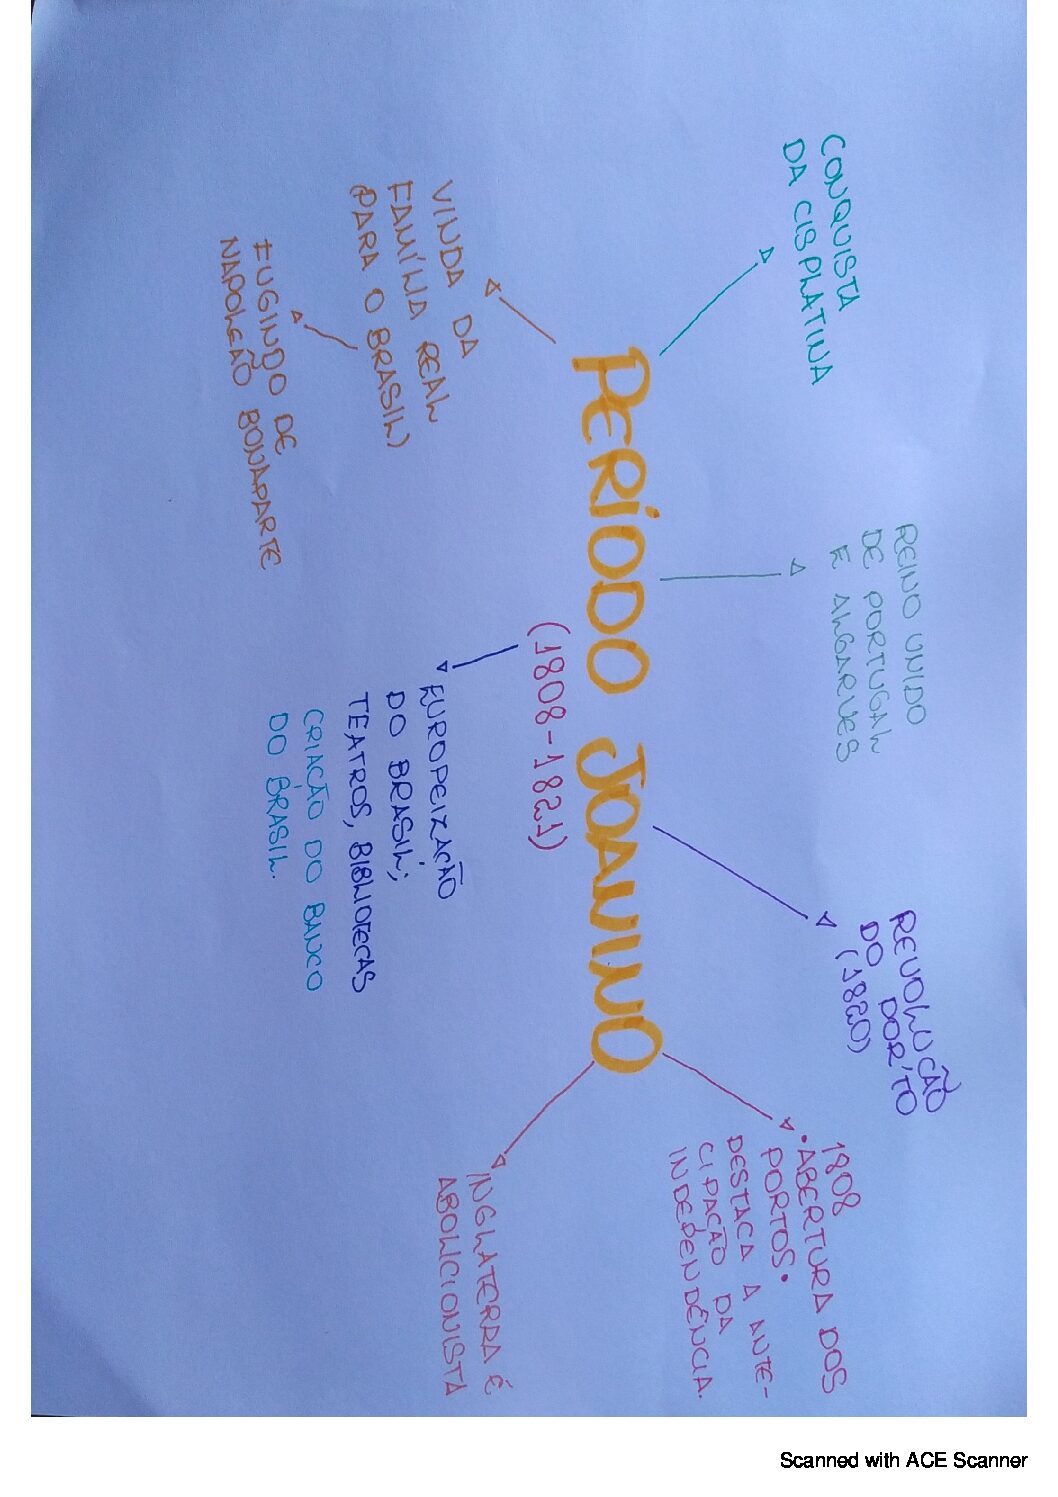 CONQUISTA
DA CISPLATINA
REINO UNIDO
DE PORTUGAL
E ALGARVES
REVOLUÇÃO
DO PORTO
(1820)
1808
•ABERTURA DOS
PORTOS•
DESTACA A ANTE-
CIPAÇÃO DA
INDEPENDÊNCIA.
PERÍODO JOANINO
(1808-1821)
VINDA DA
FAMÍLIA REAL
PARA O BRASIL)
FUGINDO DE
NAPOLEÃO BONAPARTE
EUROPEIZAÇÃO
DO BRASIL;
TEATROS, BIBLIOTECAS
CRIAÇÃO DO BANCO
DO BRASIL.
INGLATERRA É
ABOLICIONISTA
Scanned with ACE Scanner